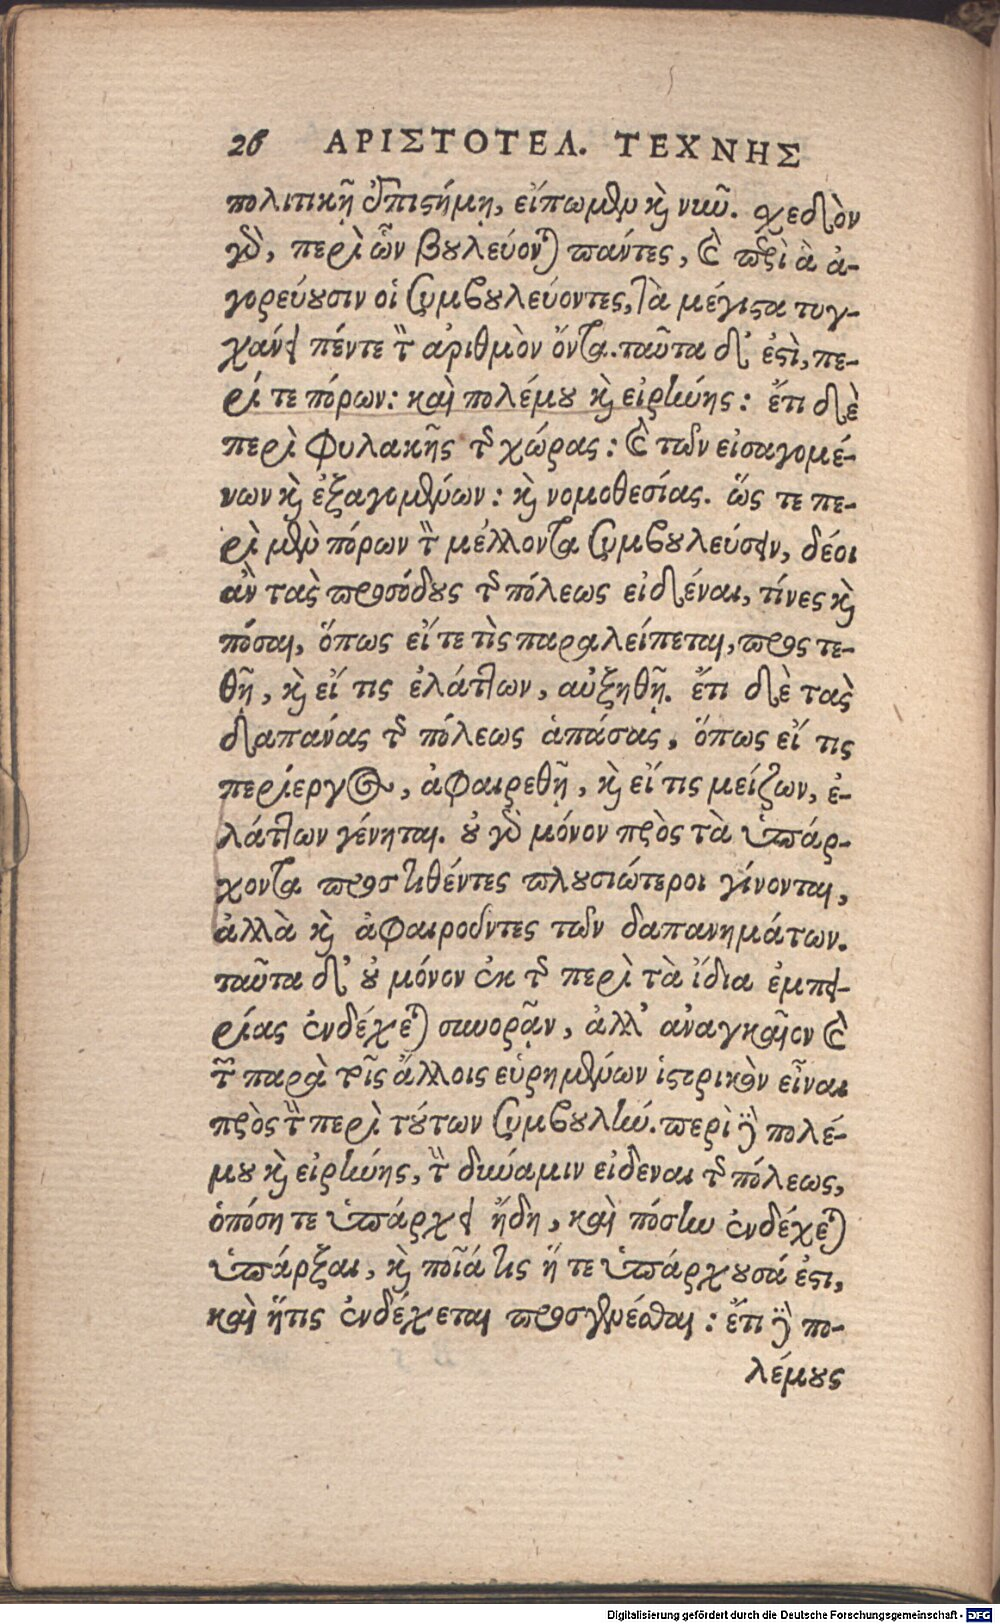 26 ΑΡΙΣΤΟΤΕΛ. ΤΕΧΝΗΣ
πολιτικῇ ἐπιστήμῃ, εἴπωμεν καὶ νῦν. σχεδὸν
γὰρ, περὶ ὧν βουλεύονται πάντες, καὶ περὶ ἃ ἀ-
γορεύουσιν οἱ συμβουλεύοντες, τὰ μέγιστα τυγ-
χάνει πέντε τὸν ἀριθμὸν ὄντα. ταῦτα δ' ἐστὶ, πε-
ρί τε πόρων: καὶ πολέμου καὶ εἰρήνης: ἔτι δὲ
περὶ φυλακῆς τῆς χώρας: καὶ τῶν εἰσαγομέ-
νων καὶ ἐξαγομένων: καὶ νομοθεσίας. ὥς τε πε-
ρὶ μὲν πόρων τὸν μέλλοντα συμβουλεύσειν, δέοι
ἂν τὰς προσόδους τῆς πόλεως εἰδέναι, τίνες καὶ
πόσαι, ὅπως εἴ τέ τὶς παραλείπεται, προςτε-
θῇ, καὶ εἴ τις ἐλάττων, αὐξηθῇ. ἔτι δὲ τὰς
δαπάνας τῆς πόλεως ἁπάσας, ὅπως εἴ τις
περίεργος, ἀφαιρεθῇ, καὶ εἴ τις μείζων, ἐ-
λάττων γένηται. οὐ γὰρ μόνον πρὸς τὰ ὑπάρ-
χοντα προστιθέντες πλουσιώτεροι γίνονται,
ἀλλὰ καὶ ἀφαιροῦντες τῶν δαπανημάτων.
ταῦτα δ' οὐ μόνον ἐκ τῆς περὶ τὰ ἴδια ἐμπει-
ρίας ἐνδέχεται συνορᾷν, ἀλλ' ἀναγκαῖον καὶ
τῶν παρὰ τοῖς ἄλλοις εὑρημένων ἱστορικὸν εἶναι
πρὸς τὴν περὶ τούτων συμβουλήν. περὶ δὲ πολέ-
μου καὶ εἰρήνης, τὴν δύναμιν εἰδεναι τῆς πόλεως,
ὁπόση τε ὑπάρχει ἤδη, καὶ πόσην ἐνδέχεται
ὑπάρξαι, καὶ ποῖά τις ἥ τε ὑπάρχουσά ἐστι,
καὶ ἥτις ἐνδέχεται προσγενέσθαι: ἔτι δὲ πο-
λέμους
Digitalisierung gefördert durch die Deutsche Forschungsgemeinschaft - DFG